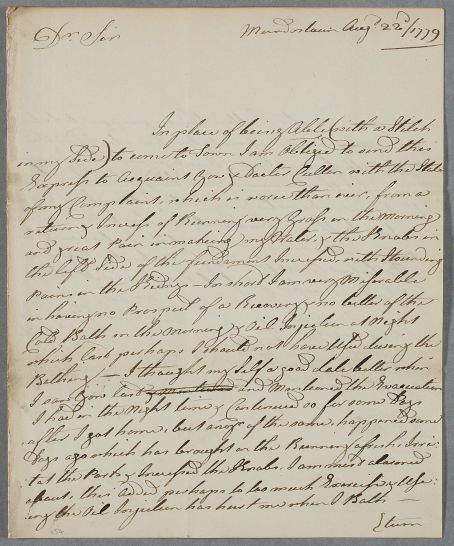 Dr. Sir
Augt. 22d/1779
In place of being Able (with a Stitch
in my Side) to come to Town I am Obliged to send this
Express to Acquaint you & Doctor Cullen with the State
of my Complaint, which is worse than ever, from a
return & Incress of Running very Gross in the Morning
and great Pain in making my Water, & the Knots in
the left Side of the fundament Incresed, with
Pains in the Kidneys - In short I am very Miserable
in having no Prospect of a Recovery no better of the
Cold Bath in the Morning & Oil Injection at Night
which last perhaps I should not have Used during the
Bathing - I thought my Self a good dale better when
I saw you last & and Mentioned the Evacuation
I had in the Night time & Continued so for some Days
after I got home, but any of the same, happened some
Days ago which has brought on the Running afresh,
at the Part & Incresed the Knots, I am most alarmed
about, this Added perhaps to too much Exercise & Use:
ing the Oil Injection has hurt me when I Bath -
turn